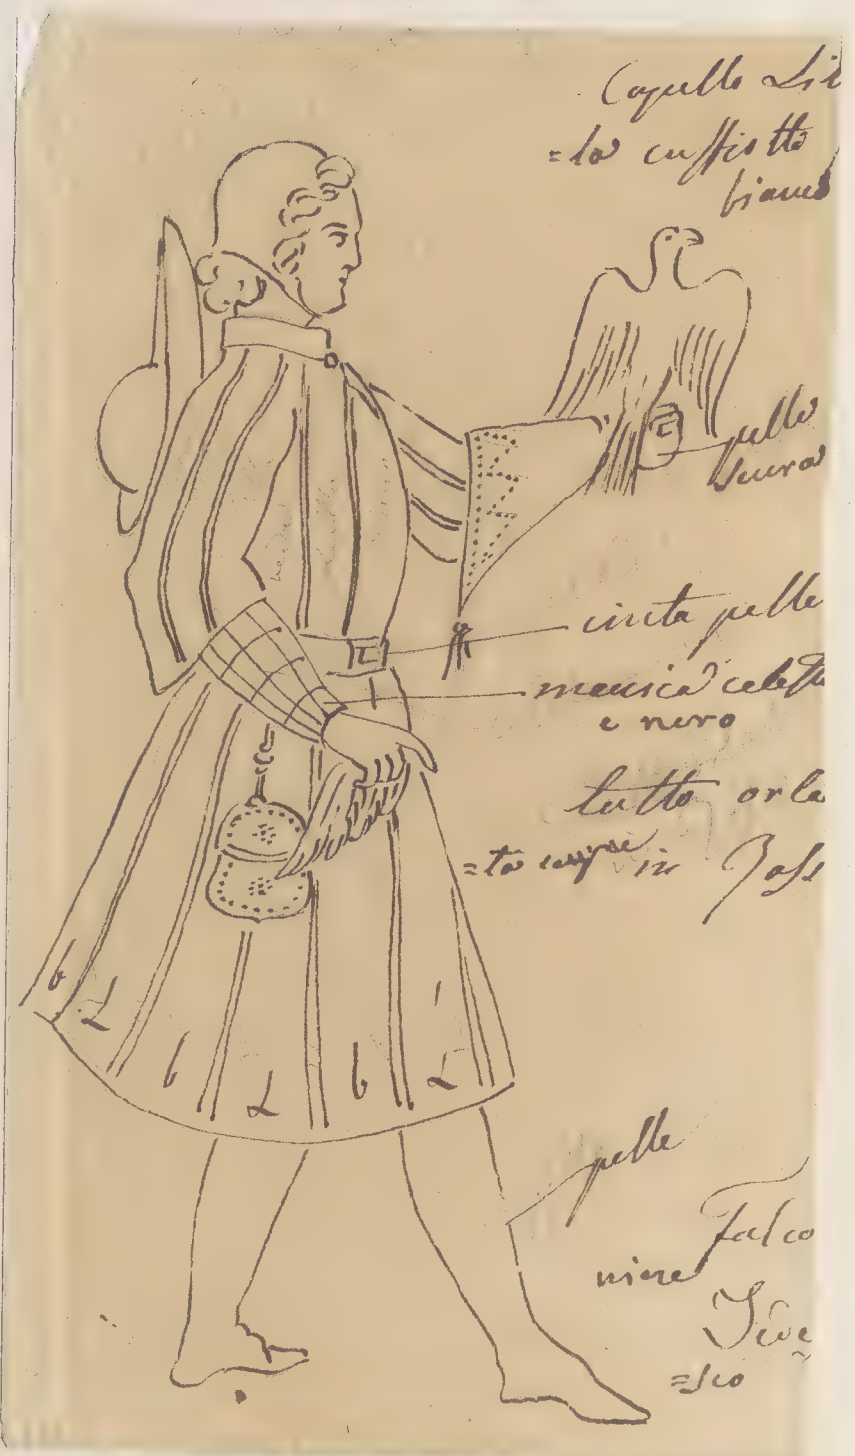 Capello Lil
=la cuffiotto
bianco
pelle
scura
cinta pelle
manica celeste
e nero
tutto orla
=to in
b L b L b L
pelle
Falco
niere
=sco